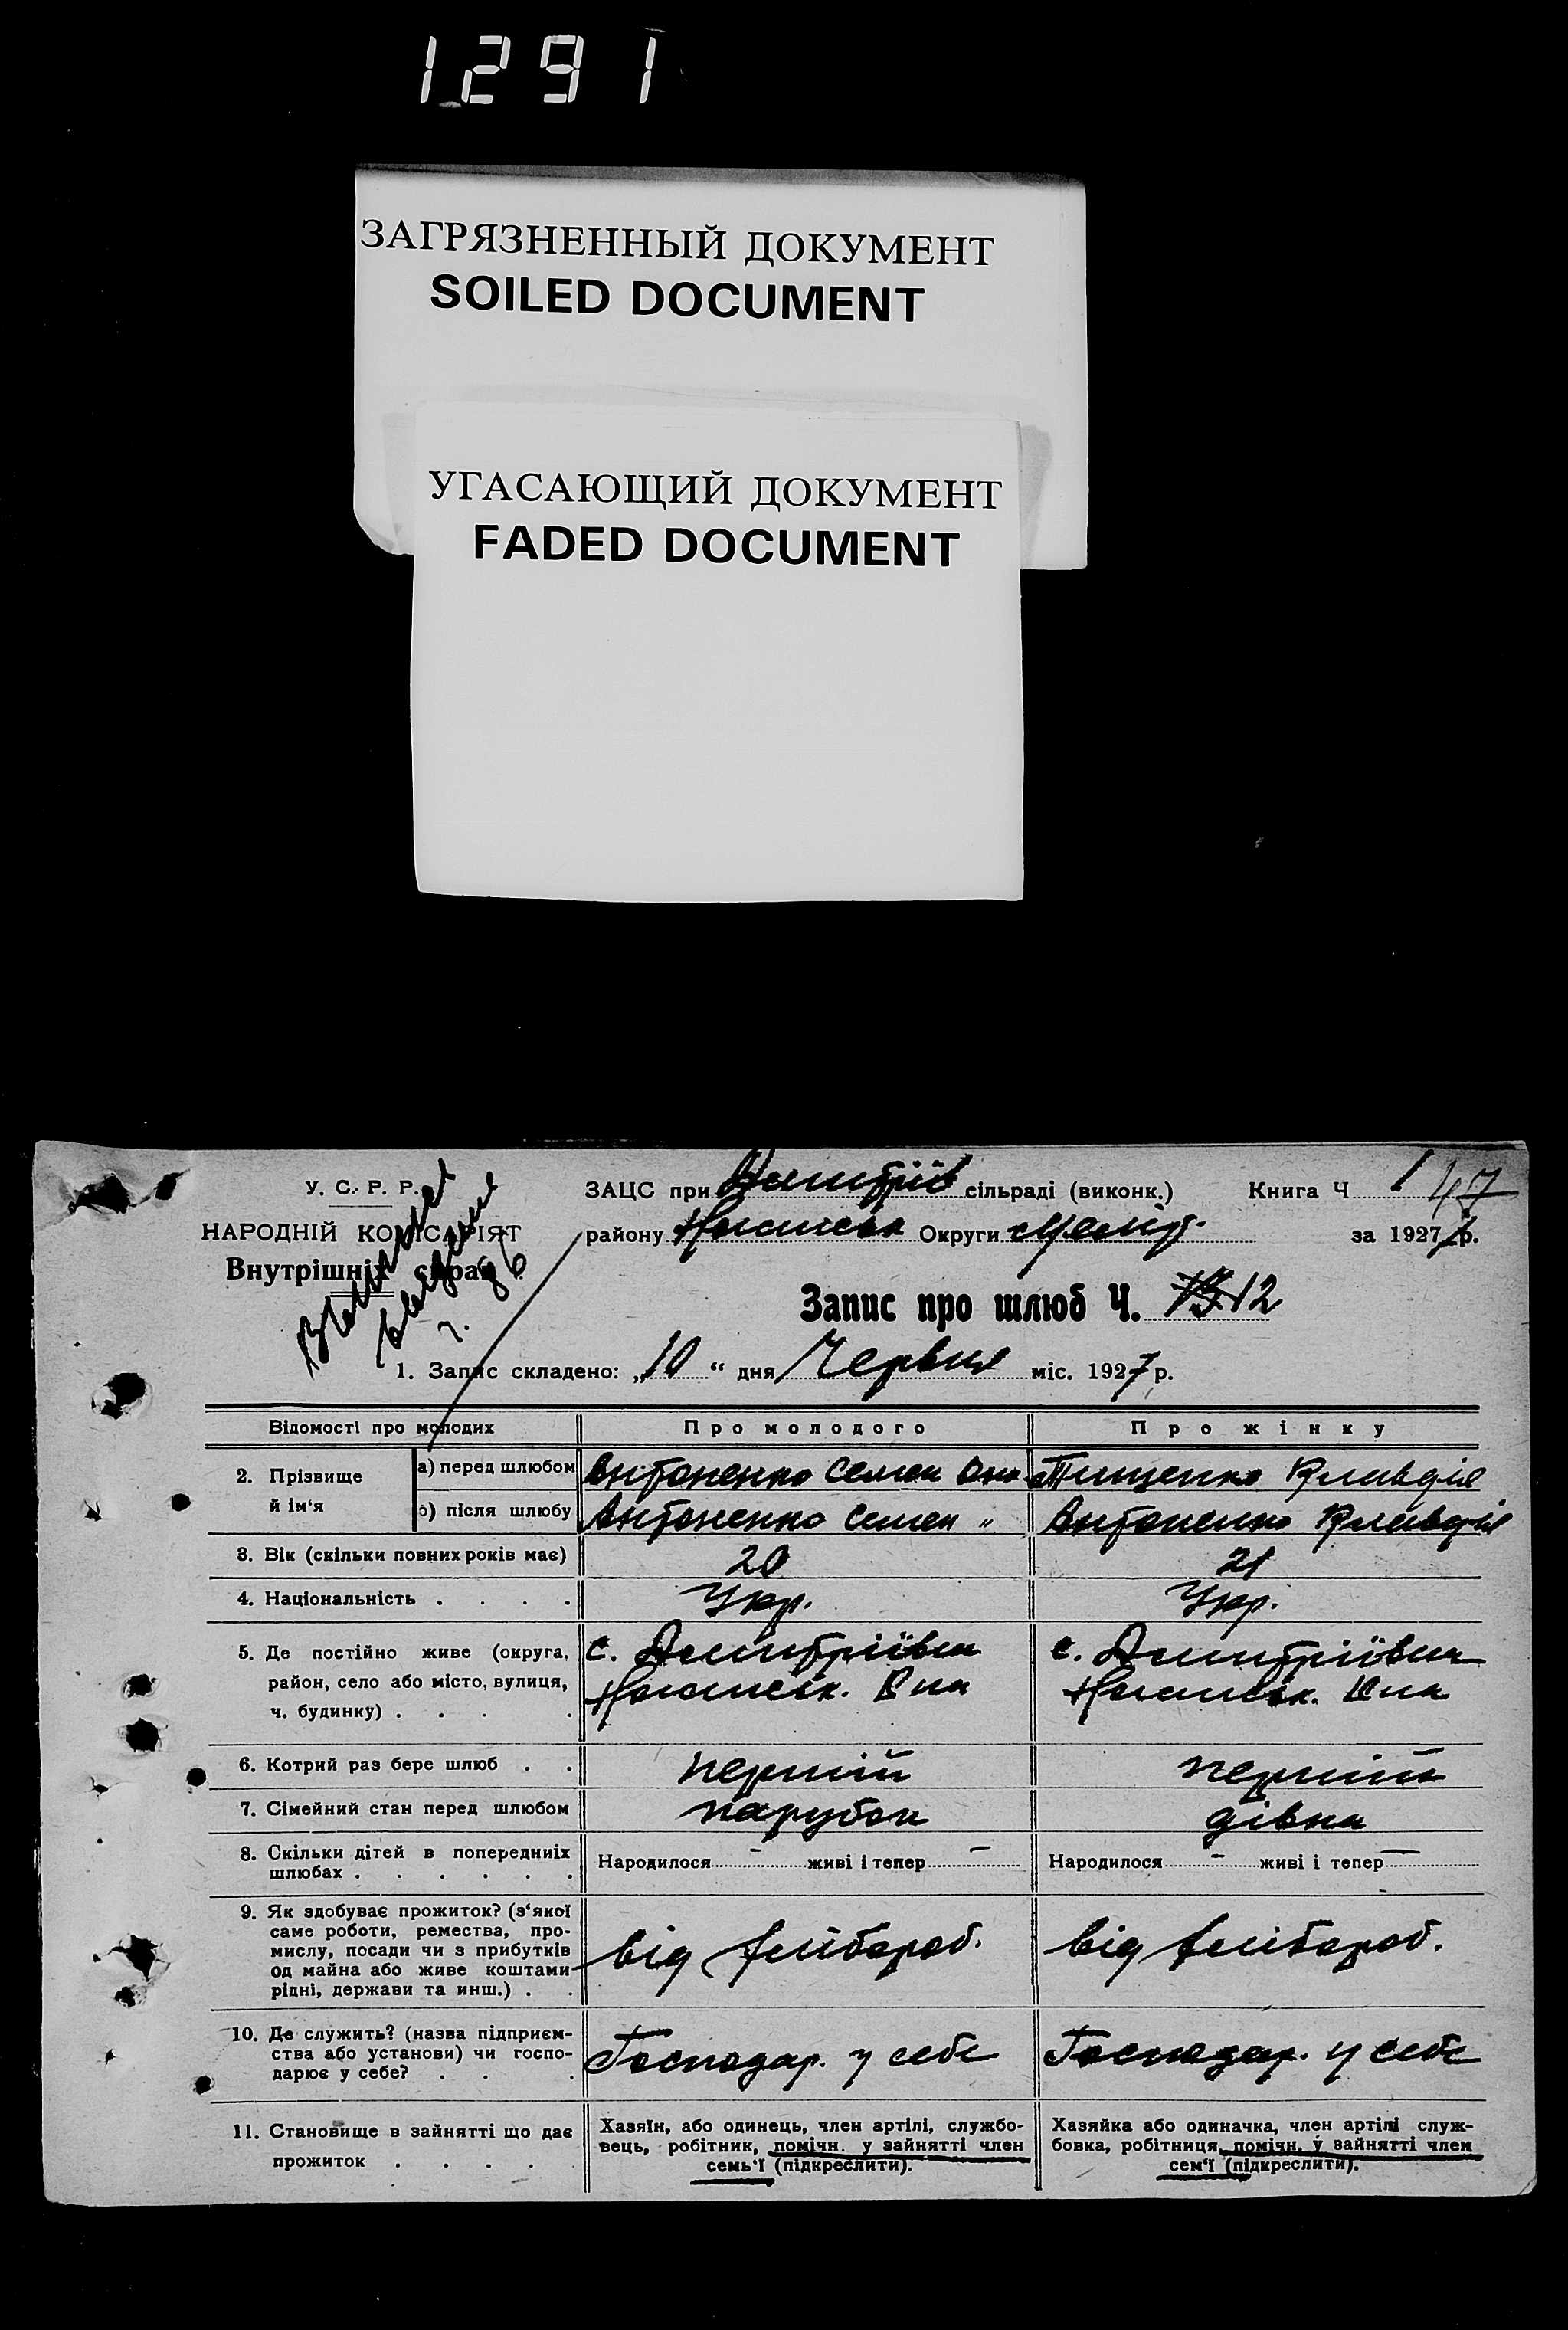 1291
ЗАГРЯЗНЕННЫЙ ДОКУМЕНТ
SOILED DOCUMENT
УГАСАЮЩИЙ ДОКУМЕНТ
FADED DOCUMENT
У. С. Р. Р.
НАРОДНІЙ КОМІСАРІЯТ
Внутрішніх справ
ЗАЦС при Дмитріїв сільраді (виконк.) Книга Ч 1 47
району Округи за 1927 р.
Запис про шлюб Ч. 12
1. Запис складено: „10“ дня Червня міс. 1927 р.
Відомості про молодих Про молодого Про жінку
2. Прізвище й ім‘я
а) перед шлюбом Антоненко Семен Тищенко Клавдія
б) після шлюбу Антоненко Семен „ Антоненко Клавдія
3. Вік (скільки повних років має) 20 21
4. Національність . . . . Укр. Укр.
5. Де постійно живе (округа, район, село або місто, вулиця, ч. будинку) . . . .
с. Дмитріївка с. Дмитріївка
6. Котрий раз бере шлюб . . перший перший
7. Сімейний стан перед шлюбом парубок дівка
8. Скільки дітей в попередниіх шлюбах . . . . . .
Народилося - живі і тепер - Народилося - живі і тепер -
9. Як здобуває прожиток? (з‘якої саме роботи, ремества, промислу, посади чи з прибутків од майна або живе коштами рідні, держави та инш.) . .
від хлібороб. від хлібороб.
10. Де служить? (назва підприємства або установи) чи господарює у себе? . . .
Господар. у себе Господар. у себе
11. Становище в зайнятті що дає прожиток . . . .
Хазяїн, або одинець, член артілі, службовець, робітник, помічн. у зайнятті член семь‘ї (підкреслити).
Хазяйка або одиначка, член артілі службовка, робітниця, помічн. у зайнятті член сем‘ї (підкреслити).